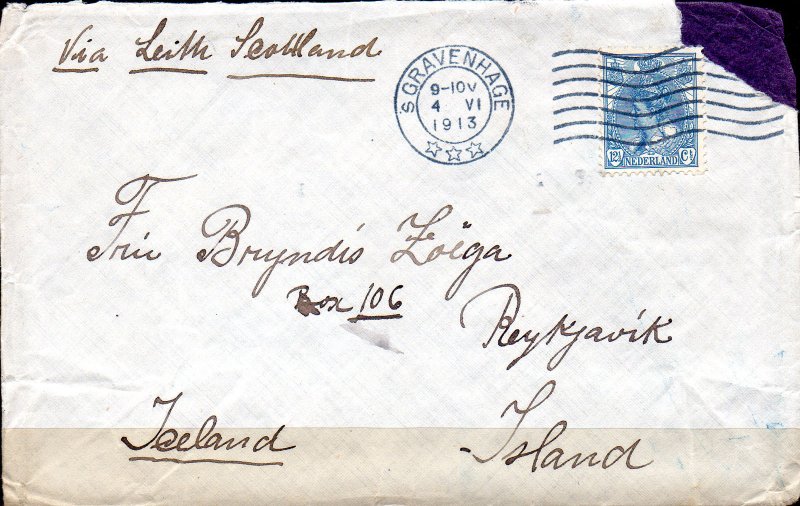 Via Leith Scottland
'SGRAVENHAGE
9-10V
4 VI
1913
12½ NEDERLAND Ct
Frú Bryndís Zoëga
Box 106
Reykjavík
Iceland
Island